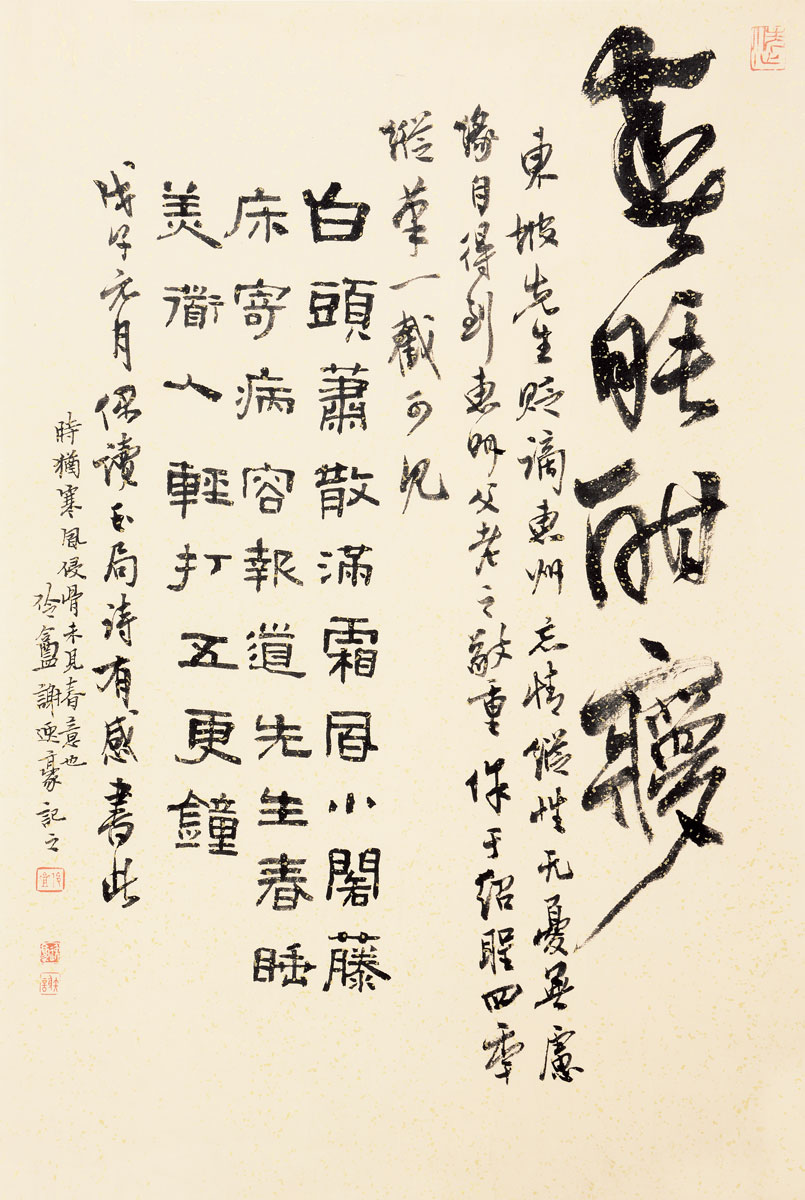 春睡酣夢
東坡先生貶謫惠州忘情縱性无憂無慮
緣自得到惠州父老之敬重作于紹聖四年
縱筆一截可見
白頭蕭散滿霜風小閣藤
床寄病容報道先生春睡
美衟人輕打五更鐘
戊子元月偶讀玉局詩有感書此
時猶寒風侵骨未見春意也
盦謝豪記之